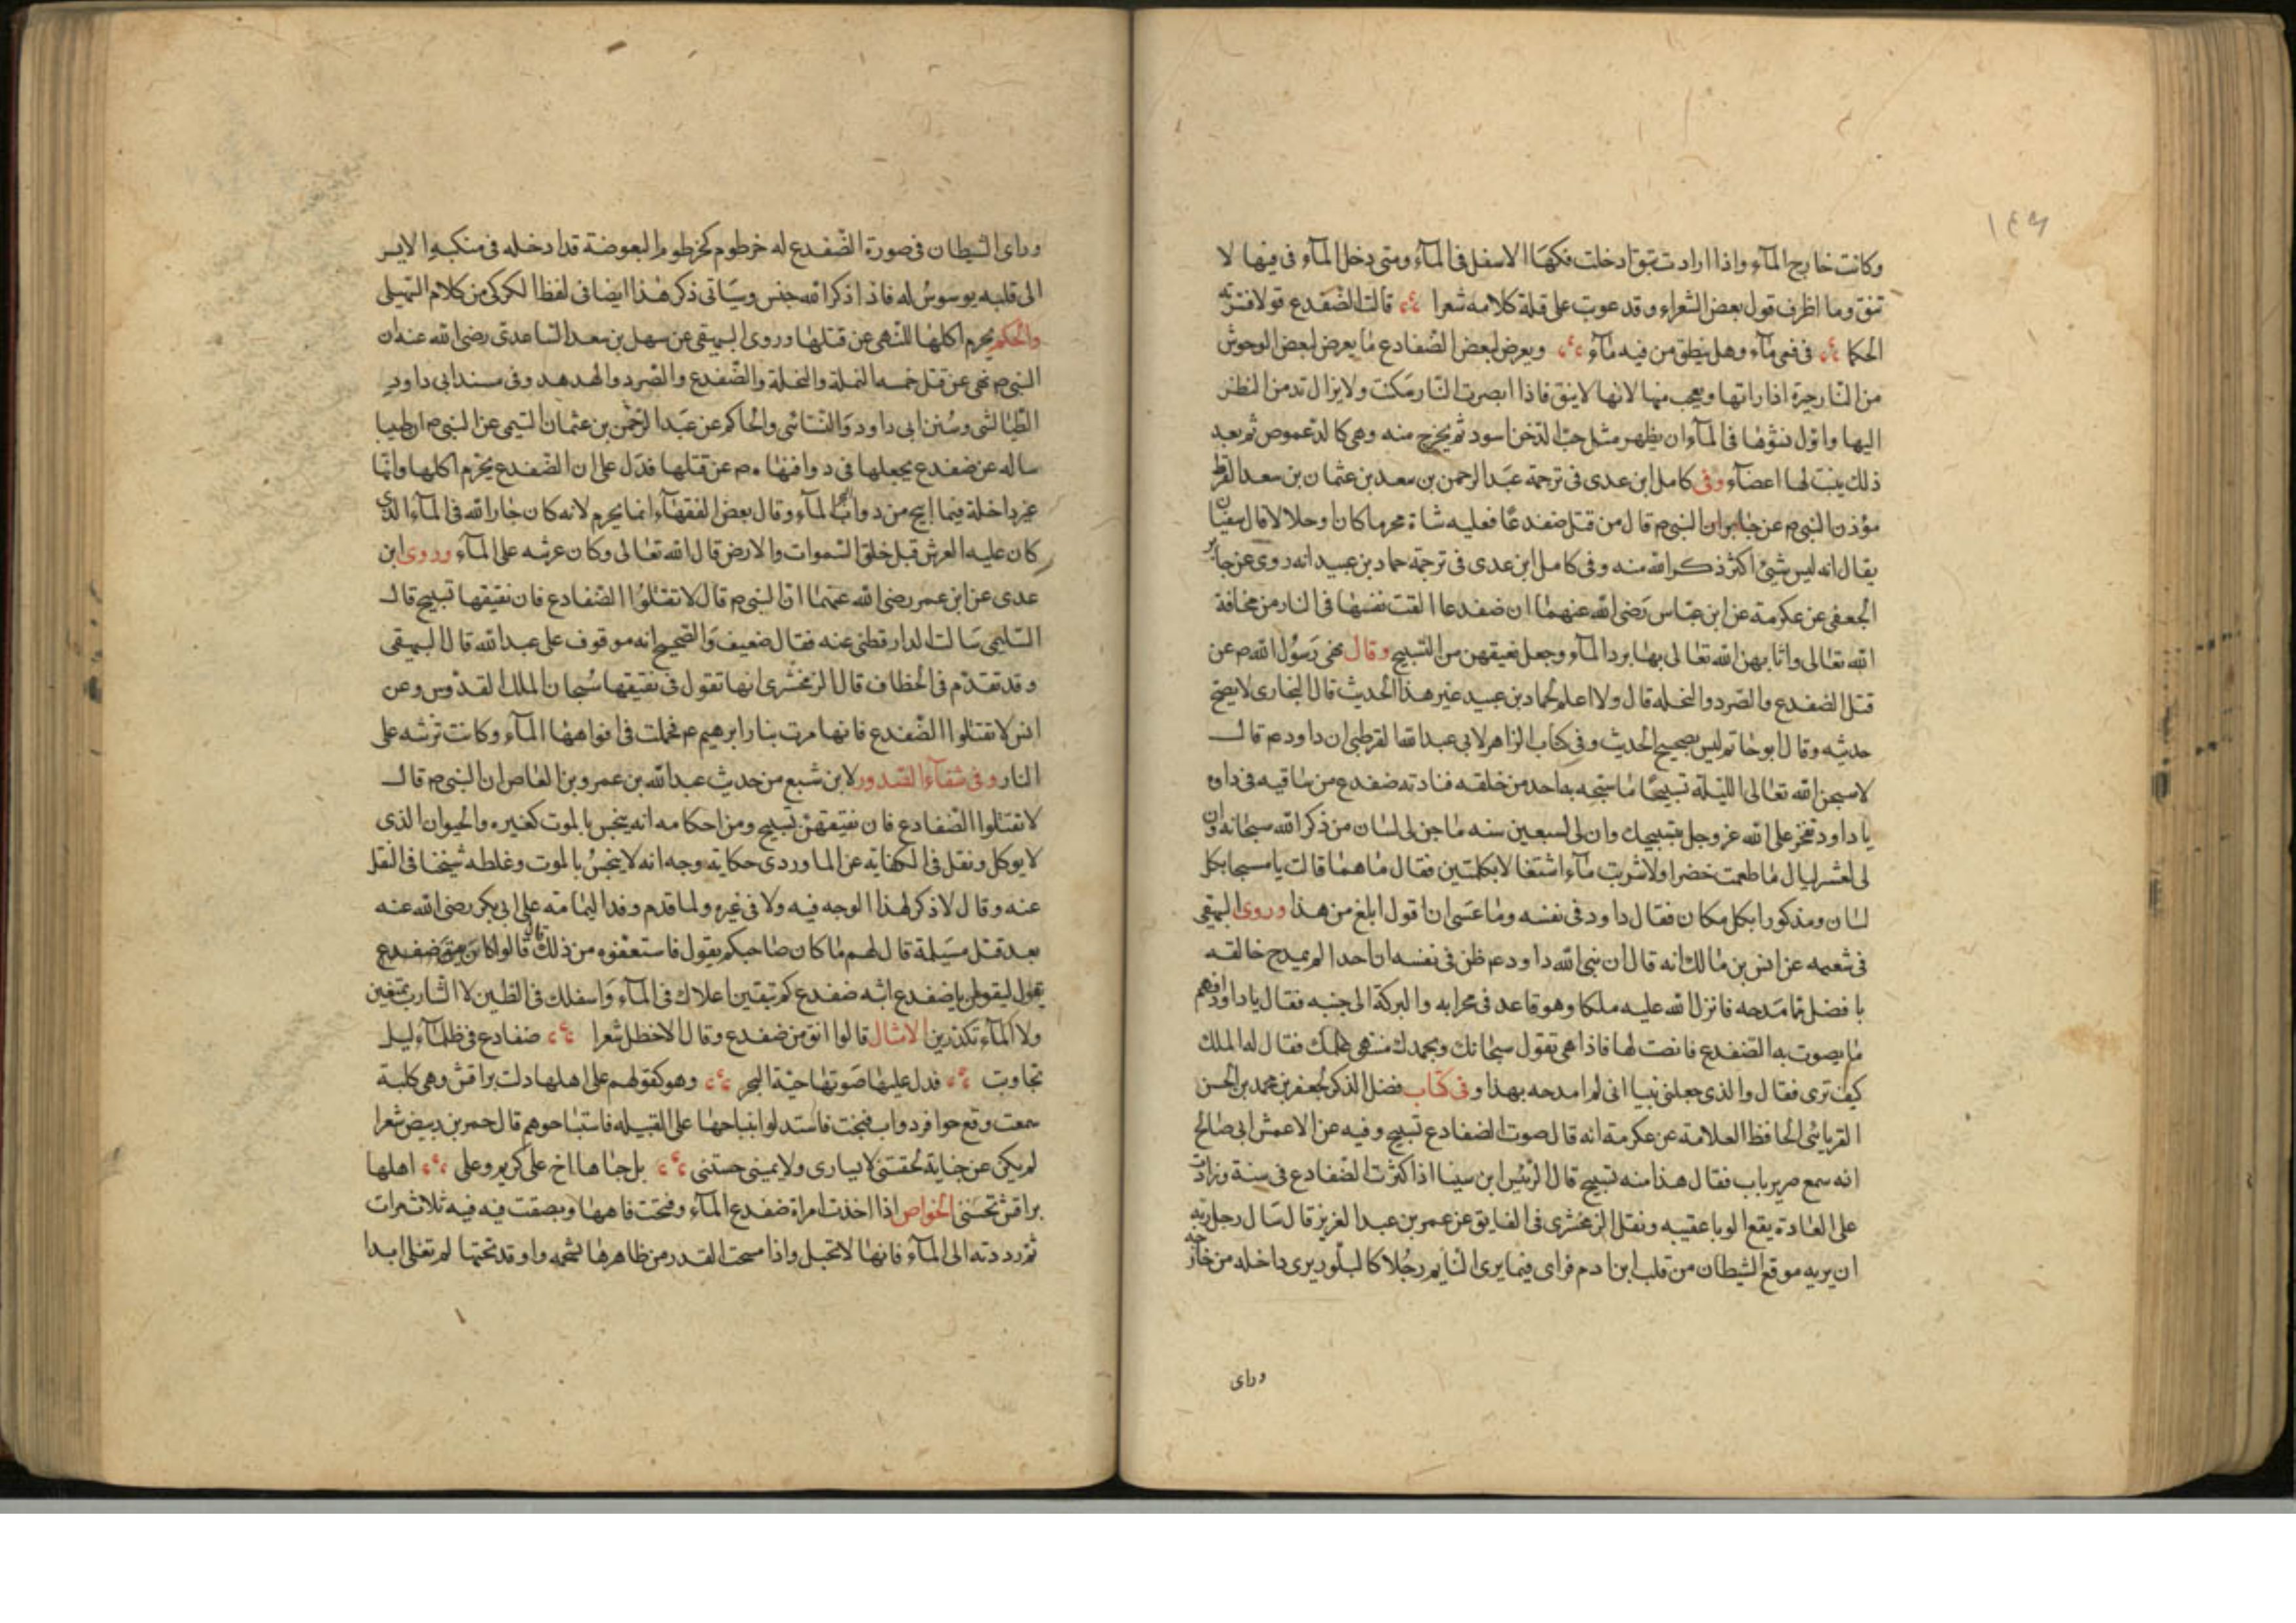 ١٤٦
وكانت خارج المآء واذا ارادت تنق ادخلت فكها الاسفل فى المآء ومتى دخل المآء فى فيها لا
تنق وما اظرف قول بعض الشعراء وقد عوتب على قلة كلامه شعرا قالت الضفدع قولا فسرته
الحكما فى فمى مآء وهل ينطق من فيه مآء ويعرض لبعض الضفادع ما يعرض لبعض الوحوش
من النار حيرة اذا راتها ويعجب منها لانها لا ينق فاذا ابصرت النار سكنت ولا يزال تدمن النظر
اليها واول نشوها فى المآء ان يظهر مثل حب الدخن اسود ثم يخرج منه وهى كالدعموص ثم بعد
ذلك ينبت لها اعضآء وفى كامل ابن عدى فى ترجمة عبد الرحمن بن سعد بن عثمان بن سعد القرظ
مؤذن النبى م عن جابر ان النبى م قال من قتل ضفدعا فعليه شاة محرما كان او حلالا قال سفيان
يقال انه ليس شيئ اكثر ذكر الله منه وفى كامل ابن عدى فى ترجمة حماد بن عبيد انه روى عن جابر
الجعفى عن عكرمة عن ابن عباس رضى الله عنهما ان ضفدعا القت نفسها فى النار من مخافة
الله تعالى واثابهن الله تعالى بها برد المآء وجعل نقيقهن من التسبيح وقال نهى رسول الله م عن
قتل الضفدع والصرد والنحله قال ولا اعلم لحماد بن عبيد غير هذا الحديث قال البخارى لا يصح
حديثه وقال ابو حاتم ليس بصحيح الحديث وفى كتاب الزاهر لابى عبد الله القرطبى ان داود م قال
لاسبحن الله تعالى الليلة تسبيحا ما سبحه به احد من خلقه فنادته ضفدع من ساقيه فى داره
يا داود تفخر على الله عز وجل بتسبيحك وان لى لسبعين سنه ما جف لى لسان من ذكر الله سبحانه وان
لى لعشر ليال ما طعمت خضرا ولا شربت مآء اشتغالا بكلمتين فقال ما هما قالت يا مسبحا بكل
لسان ومذكورا بكل مكان فقال داود فى نفسه وما عسى ان اقول ابلغ من هذا وروى البيهقى
فى شعبه عن انس بن مالك انه قال ان نبى الله داود م ظن فى نفسه ان احدا لم يمدح خالقه
بافضل مما مدحه فانزل الله عليه ملكا وهو قاعد فى محرابه والبركة الى جنبه فقال يا داود افهم
ما يصوت به الضفدع فانصت لها فاذا هى تقول سبحانك وبحمدك منتهى علمك فقال له الملك
كيف ترى فقال والذى جعلنى نبيا انى لم امدحه بهذا وفى كتاب فضل الذكر لجعفر بن محمد بن الحسن
القريابى الحافظ العلامة عن عكرمة انه قال صوت الضفادع تسبيح وفيه عن الاعمش ابى صالح
انه سمع صرير باب فقال هذا منه تسبيح قال الرئيس ابن سينا اذا كثرت الضفادع فى سنة وزادت
على العادة يقع الوبا عقيبه ونقل الزمخشرى فى الفايق عن عمر بن عبد العزيز قال سال رجل ربه
ان يريه موقع الشيطان من قلب ابن ادم فراى فيما يرى النايم رجلا كالبلور يرى داخله من خارجه
وراى
وراى الشيطان فى صورة الضفدع له خرطوم كخرطوم البعوضة قد ادخله فى منكبه الايسر
الى قلبه يوسوس له فاذا ذكر الله خنس وسياتى ذكر هذا ايضا فى لفظ الكركى من كلام السهيلى
والحكم يحرم اكلها للنهى عن قتلها وروى البيهقى عن سهل بن سعد الساعدى رضى الله عنه ان
النبى م نهى عن قتل خمسه النملة والنحلة والضفدع والصرد والهدهد وفى مسند ابى داود
الطيالسى وسنن ابى داود والنسائى والحاكم عن عبد الرحمن بن عثمان التيمى عن النبى م ان طبيبا
ساله عن ضفدع يجعلها فى دوا فنهاه م عن قتلها فدل على ان الضفدع يحرم اكلها وانها
غير داخلة فيما ابيح من دواب المآء وقال بعض الفقهآء انما يحرم لانه كان جار الله فى المآء الذى
كان عليه العرش قبل خلق السموات والارض قال الله تعالى وكان عرشه على المآء وروى ابن
عدى عن ابن عمر رضى الله عنهما ان النبى م قال لا تقتلوا الضفادع فان نقيقها تسبيح قال
السليمى سالت الدارقطنى عنه فقال ضعيف والصحيح انه موقوف على عبد الله قال البيهقى
وقد تقدم فى الخطاف قال الزمخشرى انها تقول فى نقيقها سبحان الملك القدوس وعن
انس لا تقتلوا الضفدع فانها مرت بنار ابرهيم م فحملت فى افواهها المآء وكانت ترشه على
النار وفى شفآء الصدور لابن شبع من حديث عبد الله بن عمرو بن العاص ان النبى م قال
لا تقتلوا الضفادع فان نقيقهن تسبيح ومن احكامه انه ينجس بالموت كغيره والحيوان الذى
لا يوكل ونقل فى الكفاية عن الماوردى حكاية وجه انه لا ينجس بالموت وغلطه شيخنا فى النقل
عنه وقال لا ذكر لهذا الوجه فيه ولا فى غيره ولما قدم وفد اليمامة على ابى بكر رضى الله عنه
بعد قتل مسيلمة قال لهم ما كان صاحبكم يقول فاستعفوه من ذلك قال قالوا كان ضفدع
يقول ليقولن يا ضفدع ابنه ضفدع كم تنقين اعلاك فى المآء واسفلك فى الطين لا الشارب تمنعين
ولا المآء تكدرين الامثال قالوا انق من ضفدع وقال الاخطل شعرا ضفادع فى ظلمآء ليل
تجاوبت فدل عليها صوتها حية البحر وهو كقولهم على اهلها دلت براقش وهى كلبة
سمعت وقع حوافر دواب فنبحت فاستدلوا بنباحها على القبيله فاستباحوهم قال حمز بن بيض شعرا
لم يكن عن جناية لحقتنى لا يسارى ولا يمينى جستنى بل جناها اخ على كريم وعلى اهلها
براقش تحسنى الخواص اذا اخذت امراة ضفدع المآء وفتحت فاهها وبصقت فيه فيه ثلاث مرات
ثم رددته الى المآء فانها لا تحبل واذا مسحت القدر من ظاهرها بشحمه واوقد تحتها لم تغلى ابدا